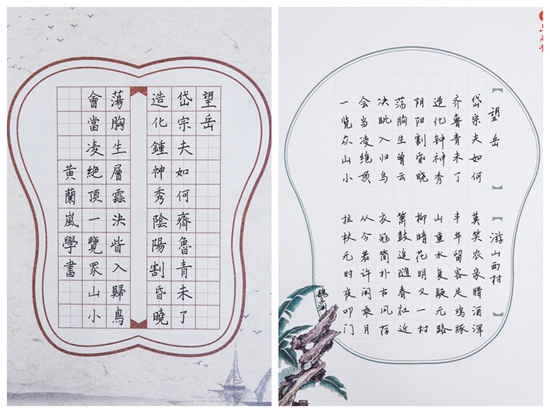 望岳
岱宗夫如何齊魯青未了
造化鍾神秀陰陽割昏曉
蕩胸生層雲決眥入歸鳥
會當凌絕頂一覽眾山小
黃蘭嵐學書
【望岳】
岱宗夫如何
齐鲁青未了
造化钟神秀
阴阳割昏晓
荡胸生曾云
决眦入归鸟
会当凌绝顶
一览众山小
【游山西村】
莫笑农家腊酒浑
丰年留客足鸡豚
山重水复疑无路
柳暗花明又一村
箫鼓追随春社近
衣冠简朴古风存
从今若许闲乘月
拄杖无时夜叩门